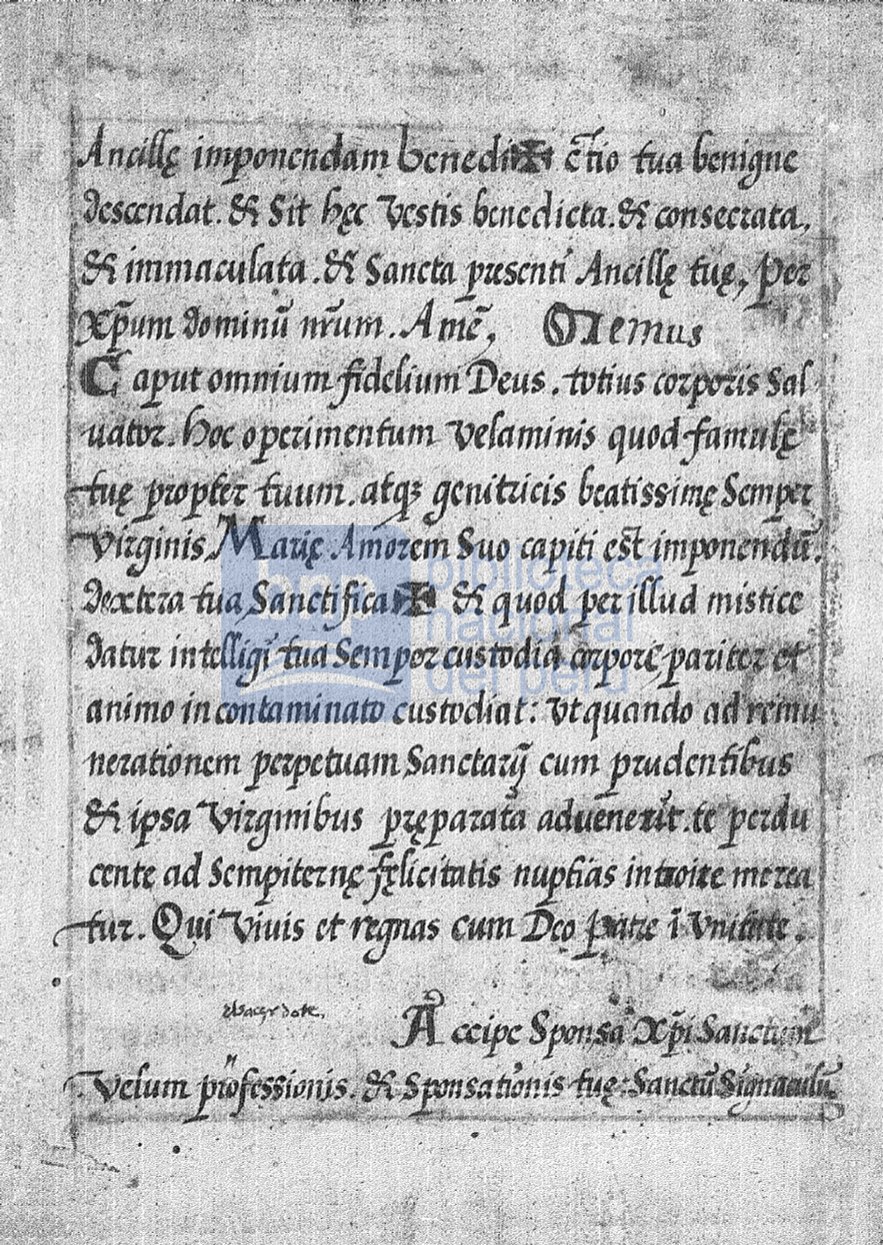 Ancillę imponendam benedi✠ c̃tio tua benigne
descendat. & Sit hęc Vestis benedicta. & consecrata,
& immaculata. & Sancta presenti Ancillę tuę, Per
Xp̃um dominũ nr̃um. Amẽ, Oremus
Caput omnium fidelium Deus. totius corporis Sal
uator. hoc operimentum velaminis quod famulę
tuę propter tuum. atq; genitricis beatissimę Semper
Virginis Marię Amorem Suo capiti est imponendũ.
dextera tua Sanctifica ✠ & quod per illud mistice
datur intelligi tua Semper custodia corpore pariter et
animo incontaminato custodiat: Vt quando ad remu
nerationem perpetuam Sanctarũ cum prudentibus
& ipsa Virginibus pręparata aduenerit. te perdu
cente ad Sempiternę fęlicitatis nuptias introire merea
tur. Qui Viuis et regnas cum Deo patre ĩ Vnitate.
Accipe Sponsa Xp̃i Sanctum
Velum professionis. & Sponsationis tuę: Sanctũ Signaculũ
bnp biblioteca
nacional
del perú